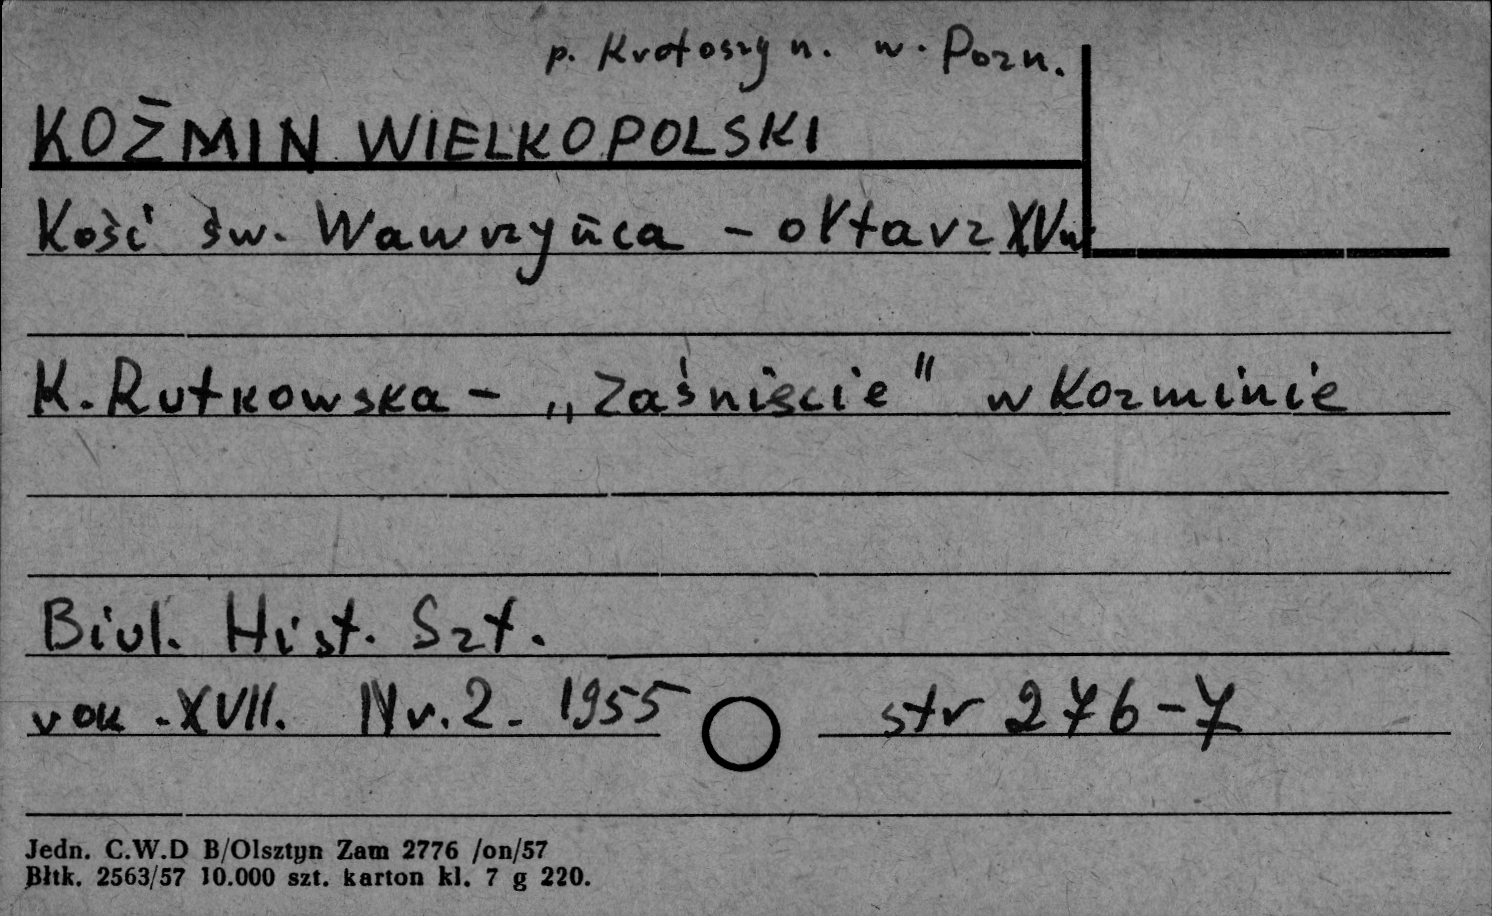 p. Krotoszyn. w. Pozn.
KOŹMIN WIELKOPOLSKI
Kość św. Wawrzyńca – ołtarz XVw
K. Rutkowska – „Zaśnięcie" w Kozminie
Biul. Hist. Szt.
rok . XVII. Nr. 2. 1955 str 276-7
Jedn. C.W.D B/Olsztyn Zam 2776 /on/57
Błtk. 2563/57 10.000 szt. karton kl. 7 g 220.